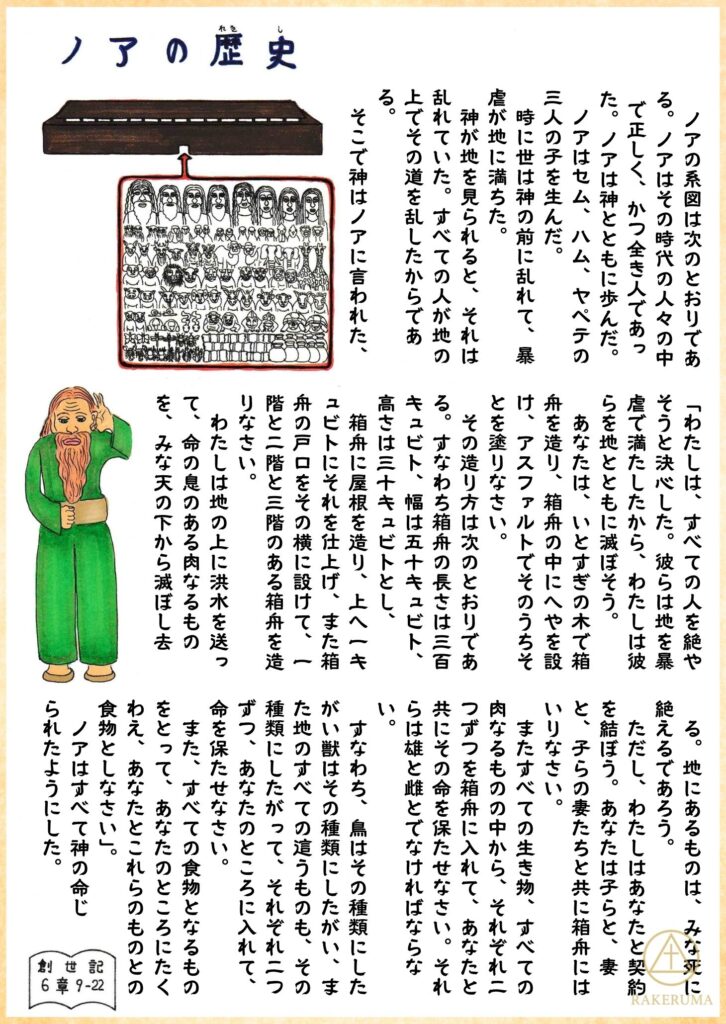 ノアの歴史
れきし
ノアの系図は次のとおりであ
る。ノアはその時代の人々の中
で正しく、かつ全き人であっ
た。ノアは神とともに歩んだ。
ノアはセム、ハム、ヤペテの
三人の子を生んだ。
時に世は神の前に乱れて、暴
虐が地に満ちた。
神が地を見られると、それは
乱れていた。すべての人が地の
上でその道を乱したからであ
る。
そこで神はノアに言われた、
「わたしは、すべての人を絶や
そうと決心した。彼らは地を暴
虐で満たしたから、わたしは彼
らを地とともに滅ぼそう。
あなたは、いとすぎの木で箱
舟を造り、箱舟の中にへやを設
け、アスファルトでそのうちそ
とを塗りなさい。
その造り方は次のとおりであ
る。すなわち箱舟の長さは三百
キュビト、幅は五十キュビト、
高さは三十キュビトとし、
箱舟に屋根を造り、上へ一キ
ュビトにそれを仕上げ、また箱
舟の戸口をその横に設けて、一
階と二階と三階のある箱舟を造
りなさい。
わたしは地の上に洪水を送っ
て、命の息のある肉なるもの
を、みな天の下から滅ぼし去
る。地にあるものは、みな死に
絶えるであろう。
ただし、わたしはあなたと契約
を結ぼう。あなたは子らと、妻
と、子らの妻たちと共に箱舟には
いりなさい。
またすべての生き物、すべての
肉なるものの中から、それぞれ二
つずつを箱舟に入れて、あなたと
共にその命を保たせなさい。それ
らは雄と雌とでなければならな
い。
すなわち、鳥はその種類にした
がい獣はその種類にしたがい、ま
た地のすべての這うものも、その
種類にしたがって、それぞれ二つ
ずつ、あなたのところに入れて、
命を保たせなさい。
また、すべての食物となるもの
をとって、あなたのところにたく
わえ、あなたとこれらのものとの
食物としなさい」。
ノアはすべて神の命じ
られたようにした。
創世記
6章9-22
RAKERUMA